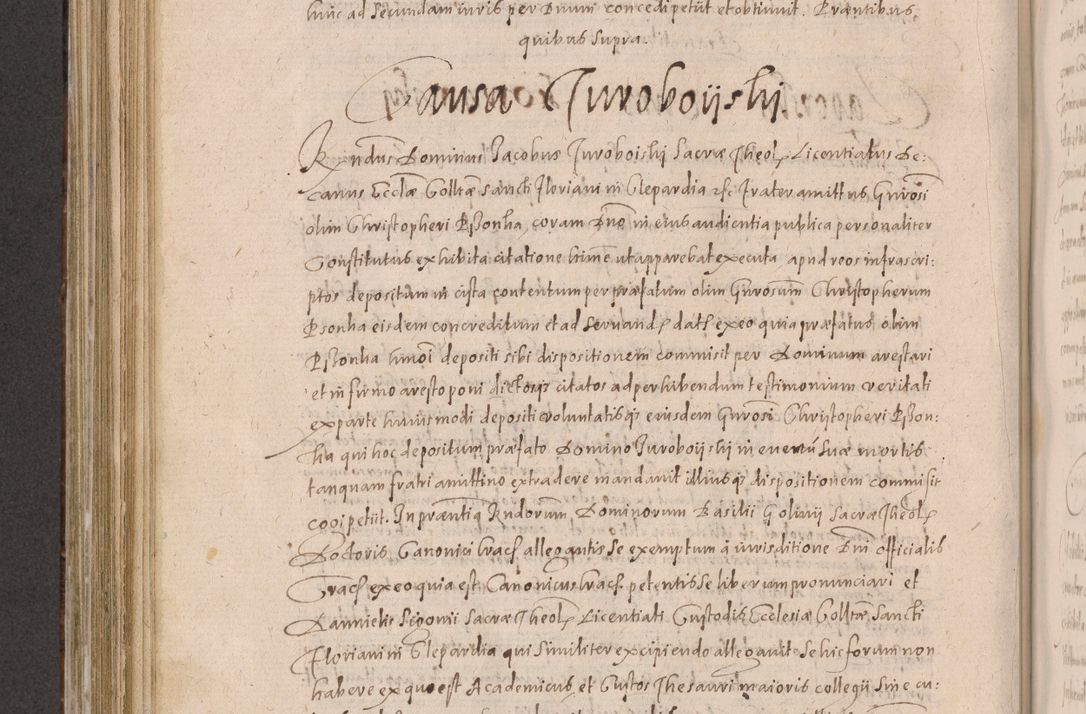 hinc ad Secundam iuris per Dnum concedi petiit et obtinuit. Præntibus,
quibus supra.
Causa Juroboijski.
Rndus Dominus Jacobus Juroboiski Sacræ Theol. Licentiatus De:
canus Ecclæ Colltæ Sancti Floriani in Clepardia frater amittnus Gnrosi
olim Christopheri Pssonka, coram Dno in eius audientia publica personaliter
Constitutus exhibita citatione hinc ut apparebat executa, apud reos infrascri:
ptos depositum in cista contentum per præfatum olim Gnrosum Christopherum
Psonka eisdem concreditum et ad servand. dats ex eo quia præfatus olim
Pssonka hmoi depositi sibi dispositionem commisit per Dominum arestari
et in firmo aresto poni dictosqz citatos ad perhibendum testimonium veritati
ex parte huiusmodi depositi voluntatisqz eiusdem Gnrosi Christopheri Psson:
ka qui hoc depositum præfato Domino Juroboijski in eventu suæ mortis
tanquam fratri amittino extradere mandavit illiusqz dispositionem commisit
cogi petiit. In præntia Rndorum Dominorum Basilii Golinij Sacræ Theol.
Doctoris, Canonici Cracs allegantis se exemptum a iurisditione Dni Officialis
Cracs ex eo quia est Canonicus Cracs. petentis se liberum pronunciari et
Dannielis Sigonii Sacræ Theol. Licentiati Custodis Ecclesiæ Colltæ Sancti
Floriani in Clepardia qui similiter excipiendo allegavit se hic forum non
habere ex quo est Academicus, et Custos Thesauri maioris collegii Sine cu: